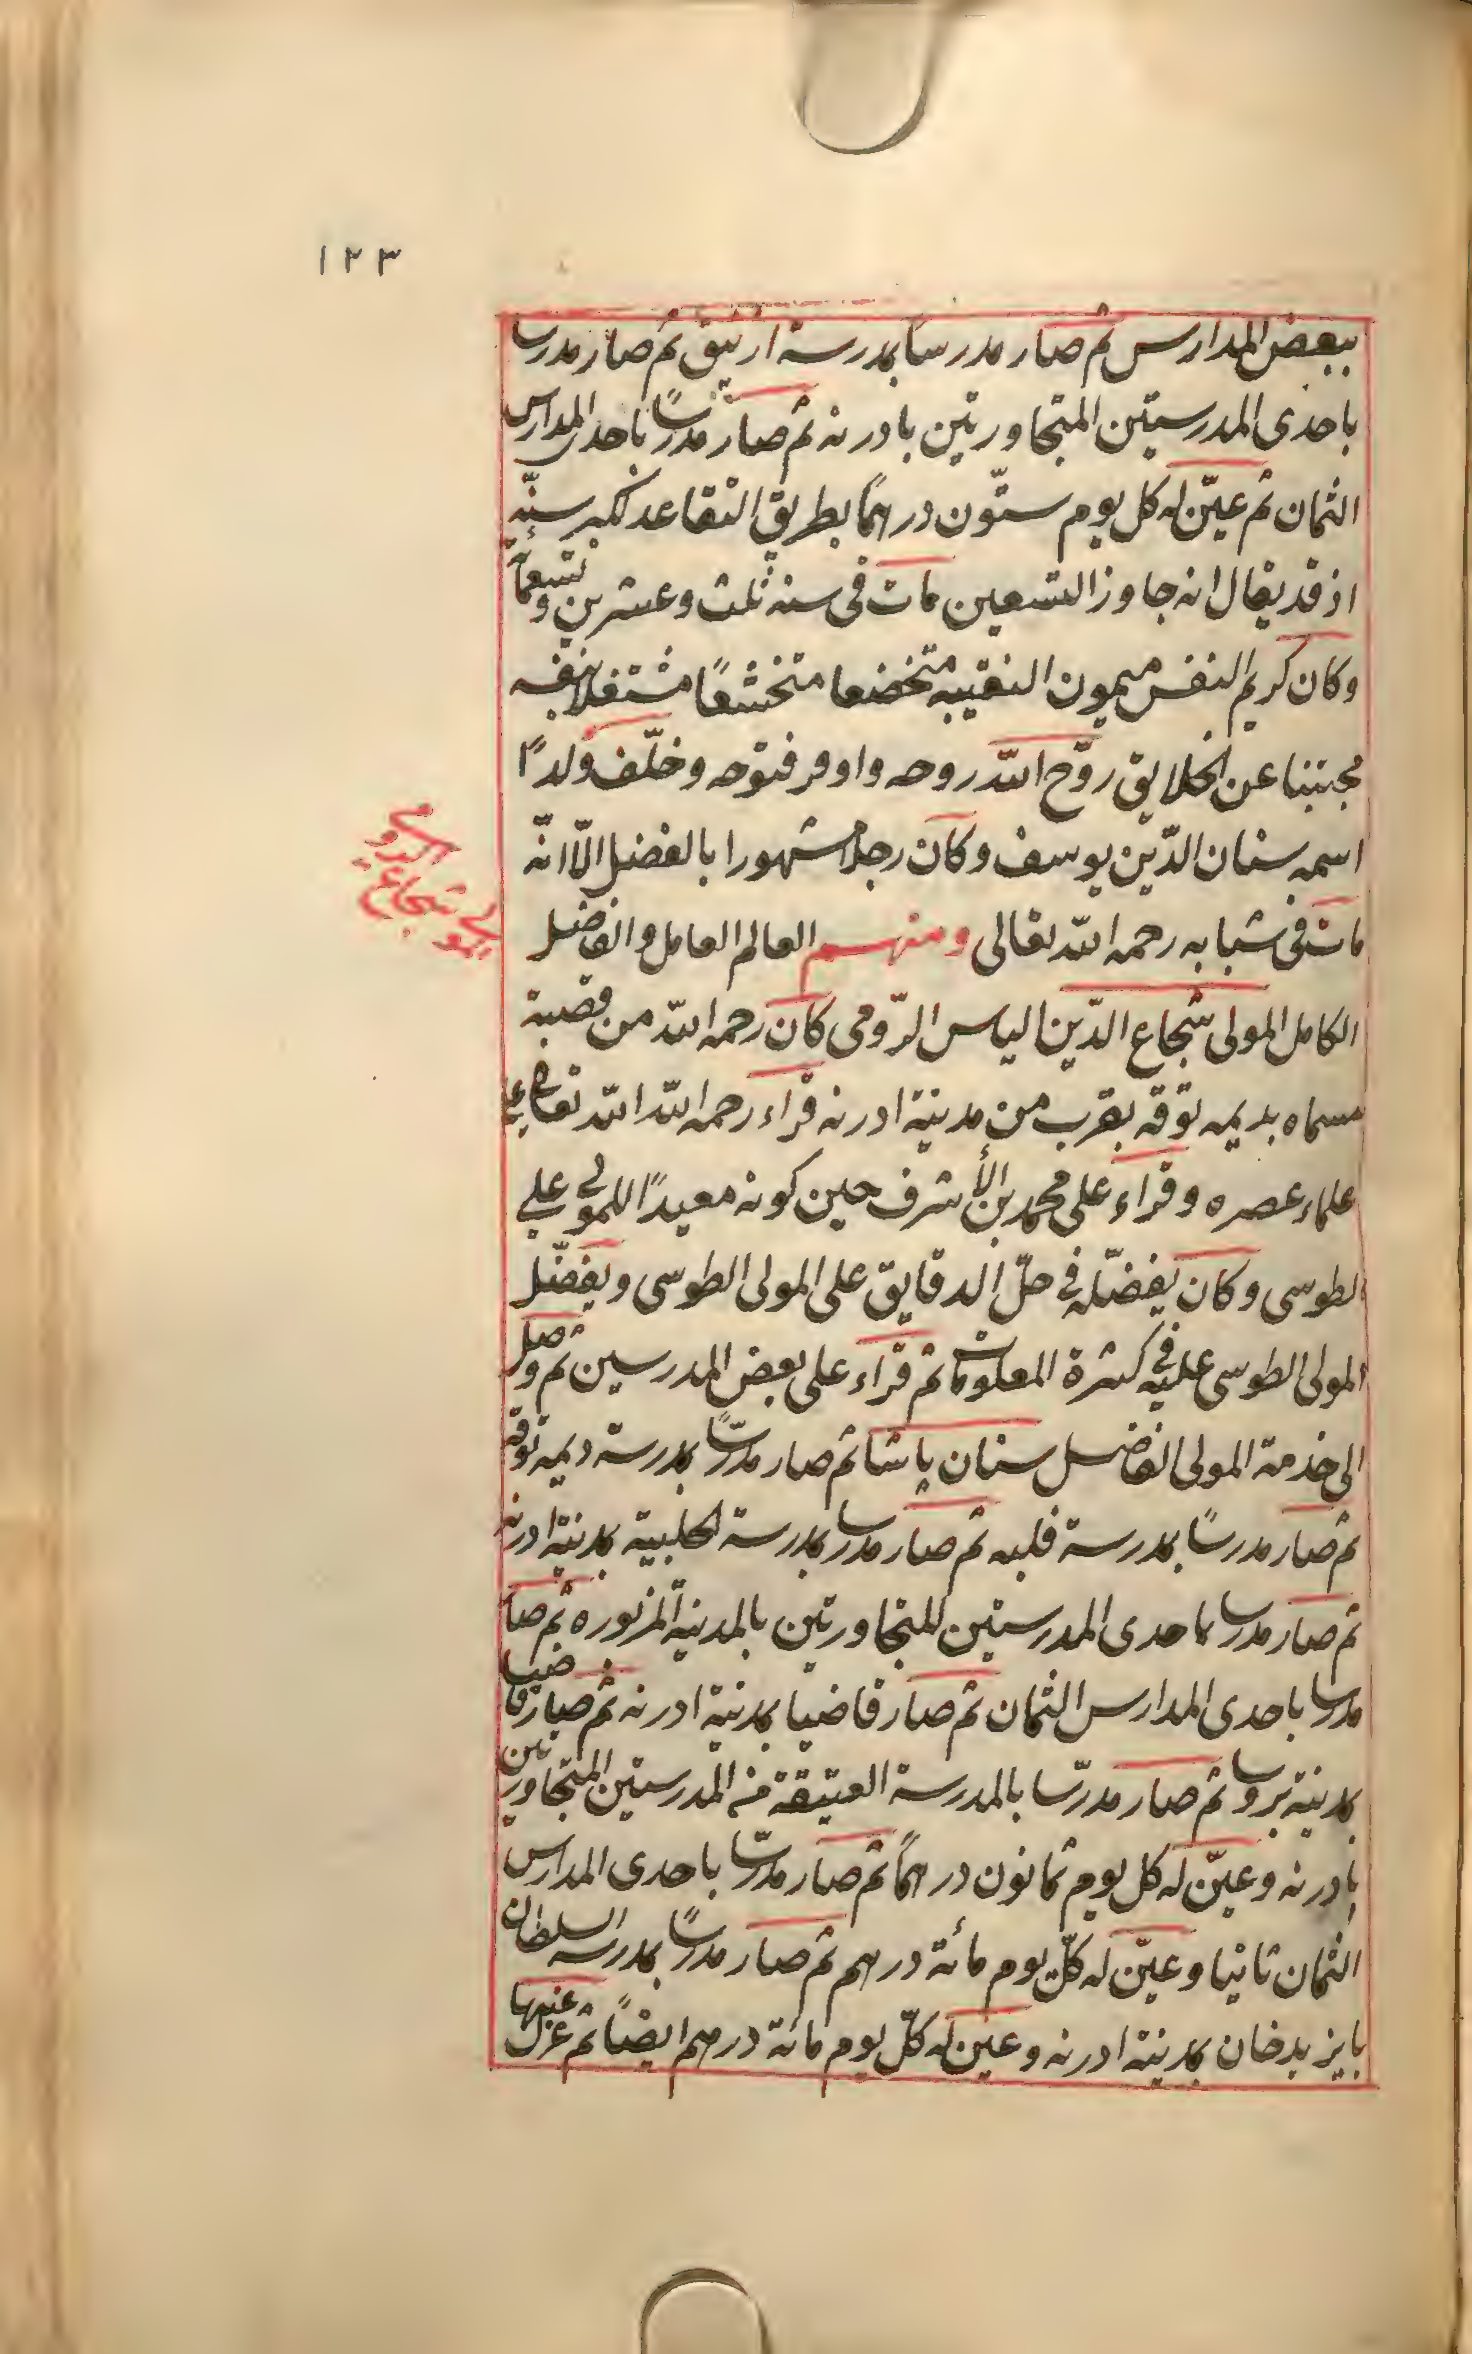 ١٢٣
ببعض المدارس ثم صار مدرسا بمدرسة ازنيق ثم صار مدرسا
باحدى المدرستين المتجاورتين بادرنه ثم صار مدرسًا باحدى المدارس
الثمان ثم عيّن له كل يوم ستّون درهمًا بطريق التقاعد لكبر سنّه
اذ قد يقال انه جاوز التسعين مات فى سنة ثلث وعشرين وتسعمائة
وكان كريم النفس ميمون النقيبه متخضعا متخشعًا مشتغلا بنفسه
مجتنبا عن الخلايق روّح الله روحه واوفر فتوحه وخلّف ولدًا
اسمه سنان الدّين يوسف وكان رجلا مشهورا بالفضل الّا انّه
مات فى شبابه رحمه الله تعالى ومنهم العالم العامل والفاضل
الكامل المولى شجاع الدّين الياس الرّومى كان رحمه الله من قصبة
مسماه بديمه توقه بقرب من مدينة ادرنه قراء رحمه الله الله تعالى على
علماء عصره وقراء على محمد بن الأشرف حين كونه معيدًا للمولى على
الطوسى وكان يفضّله فى حلّ الدقايق على المولى الطوسى ويفضّل
المولى الطوسى عليه فى كثرة المعلومات ثم قراء على بعض المدرسين ثم وصل
الى خدمة المولى الفاضل سنان پاشا ثم صار مدرّسًا بمدرسة ديمه توقه
ثم صار مدرسًا بمدرسة فلبه ثم صار مدرسا بمدرسة الحلبية بمدينة ادرنه
ثم صار مدرسا باحدى المدرستين للمتجاورتين بالمدينة المزبوره ثم صار
مدرسا باحدى المدارس الثمان ثم صار قاضيا بمدينة ادرنه ثم صار قاضيا
بمدينة بروسا ثم صار مدرّسا بالمدرسة العتيقة من المدرستين المتجاورتين
بادرنه وعيّن له كل يوم ثمانون درهمًا ثم صار مدرّسا باحدى المدارس
الثمان ثانيا وعيّن له كلّ يوم مائة درهم ثم صار مدرسًا بمدرسة السلطان
بايزيدخان بمدينة ادرنه وعيّن له كلّ يوم مائة درهم ايضًا ثم عزل عنها